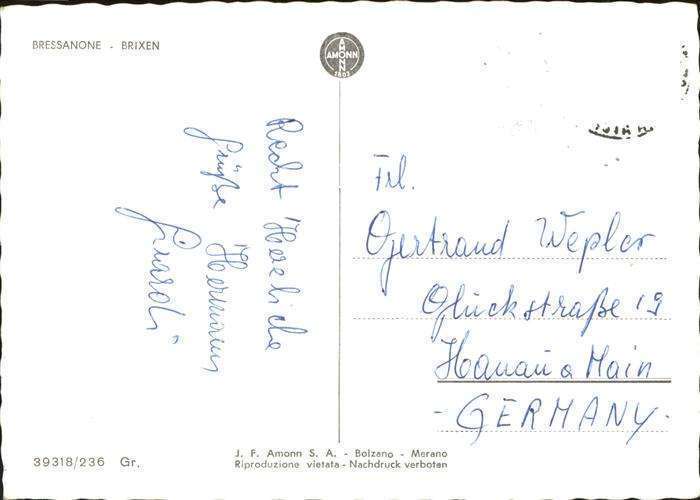 BRESSANONE - BRIXEN
AMONN
1802
Recht Herzliche
Grüße Hermann
Frl.
Gertraud Wepler
Glückstraße 19
Hanau a Main
- GERMANY -
39318/236 Gr.
J. F. Amonn S. A. - Bolzano - Merano
Riproduzione vietata - Nachdruck verboten